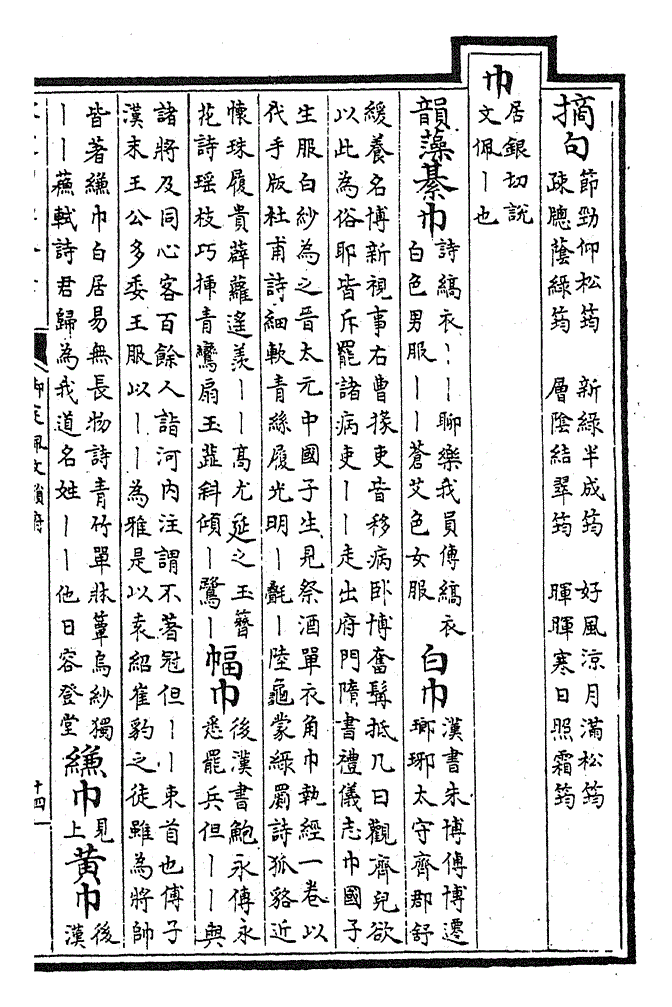 摘句 節勁仰松筠　新綠半成筠　好風涼月滿松筠
疎牕蔭綠筠　層陰結翠筠　暉暉寒日照霜筠
巾 居銀切說
文佩丨也
韻藻 綦巾 詩縞衣丨丨聊樂我員傳縞衣
白色男服丨丨蒼艾色女服 白巾 漢書朱博傳博遷
瑯琊太守齊郡舒
緩養名博新視事右曹掾吏皆移病卧博奮髯抵几曰觀齊兒欲
以此為俗耶皆斥罷諸病吏丨丨走出府門隋書禮儀志巾國子
生服白紗為之晉太元中國子生見祭酒單衣角巾執經一卷以
代手版杜甫詩細軟青絲履光明丨氎丨陸龜蒙綠罽詩狐貉近
懷珠履貴薜蘿遙羨丨丨高尤延之玉簪
花詩瑶枝巧揷青鸞扇玉蕋斜傾丨鷺丨 幅巾 後漢書鮑永傳永
悉罷兵但丨丨與
諸將及同心客百餘人詣河内注謂不著冠但丨丨束首也傅子
漢末王公多委王服以丨丨為雅是以袁紹崔豹之徒雖為將帥
皆著縑巾白居易無長物詩青竹單牀簟烏紗獨
丨丨蘓軾詩君歸為我道名姓丨丨他日容登堂 縑巾 見
上 黃巾 後
漢
御定佩文韻府
十四